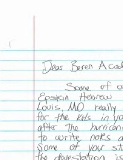 Dear Beren Acad
Some of ou
Epstein Hebrew
Louis, MO really
for the kids in yo
after the hurrican
to write notes a
Some of your st
the devastation